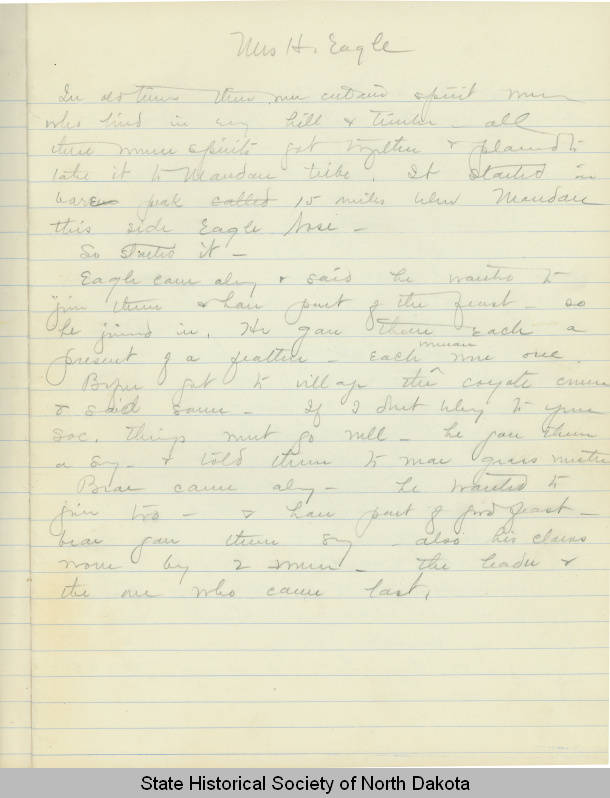 Mrs H. Eagle
In old times there were certain spirit men
who lived in any hill & timber - all
these spirits got together & planned to
take it to Mandan tribe. It started in
peak called 15 miles when Mandan
this side Eagle Nose -
So started it -
Eagle came along & said he wanted to
join them & have part of the feast - so
he joined in. He gave them each a
present of a feather - Each wore one.
Before got to village the coyote came
& said same - If I don't belong to your
soc. things must go well - he gave them
a song - & told them to wear grass
Bear came along - he wanted to
join too - & have part of good feast -
bear gave them song - also his claws
worn by 2 men - the leader &
the one who came last.
State Historical Society of North Dakota